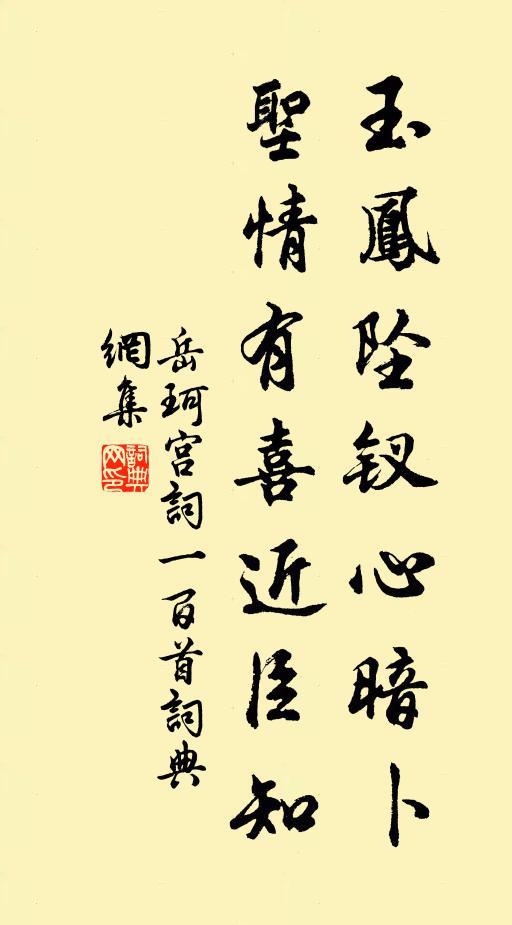 玉鳳墜釵心暗卜
聖情有喜近臣知
岳珂宮詞一百首詞典
網集
詞典
網印